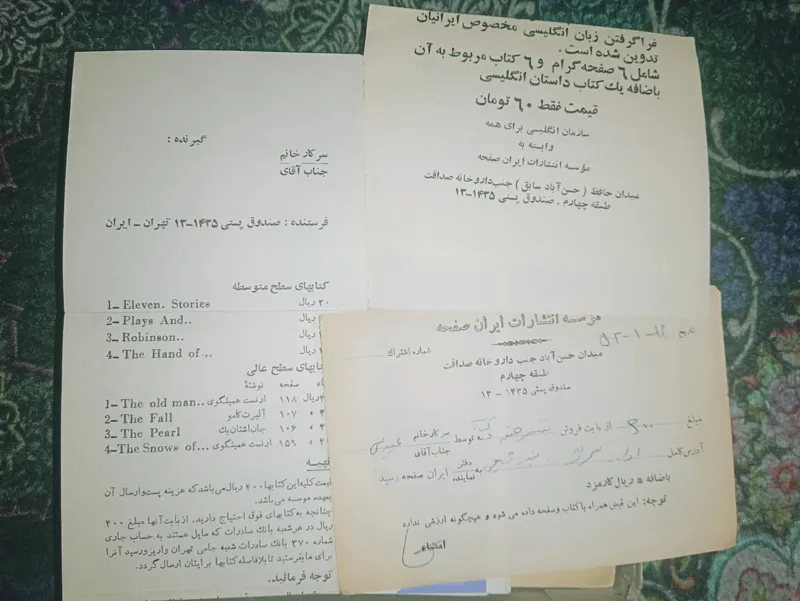 فراگرفتن زبان انگلیسی مخصوص ایرانیان
تدوین شده است.
شامل ۶ صفحه گرام و ۶ کتاب مربوط به آن
باضافه یك کتاب داستان انگلیسی
قیمت فقط ۶۰ تومان
سازمان انگلیسی برای همه
وابسته به
مؤسسه انتشارات ایران صفحه
میدان حافظ (حسن‌آباد سابق) جنب داروخانه صداقت
طبقه چهارم . صندوق پستی ۱۴۳۵-۱۳
گیرنده :
سرکار خانم
جناب آقای
فرستنده : صندوق پستی ۱۴۳۵-۱۳ تهران - ایران
کتابهای سطح متوسطه
1- Eleven. Stories ۳۰ ریال
2- Plays And.. ریال
3- Robinson.. ریال
4- The Hand of ..
کتابهای سطح عالی
نوشتهٔ صفحه
1- The old man.. ارنست همینگوی ۱۱۸ ریال
2- The Fall آلبرت کامو ۱۰۷
3- The Pearl جان اشتان بك ۱۰۶
4-The Snows of... ارنست همینگوی ۱۵۹
قیمت کلیه این کتابها ۴۰۰ ریال می‌باشد که هزینه پست و ارسال آن
بعهده موسسه می‌باشد.
چنانچه به کتابهای فوق احتیاج دارید. از بابت آنها مبلغ ۴۰۰
ریال در هر شعبه بانك صادرات که مایل هستند به حساب جاری
شماره ۳۷۰ بانك صادرات شعبه جامی تهران واریز و رسید آنرا
برای ما بفرستید تا بلافاصله کتابها برایتان ارسال گردد.
توجه فرمائید..
مؤسسه انتشارات ایران صفحه
شماره اشتراك
میدان حسن‌آباد جنب داروخانه صداقت
طبقه چهارم
صندوق پستی ۱۴۳۵ - ۱۳
مبلغ از بابت فروش توسط سرکار خانم
جناب آقای
آدرس کامل به دفتر نماینده ایران صفحه رسید
باضافه ۵ ریال کارمزد
توجه: این قبض همراه با کتاب و صفحه داده می شود و هیچگونه ارزشی ندارد
امضاء